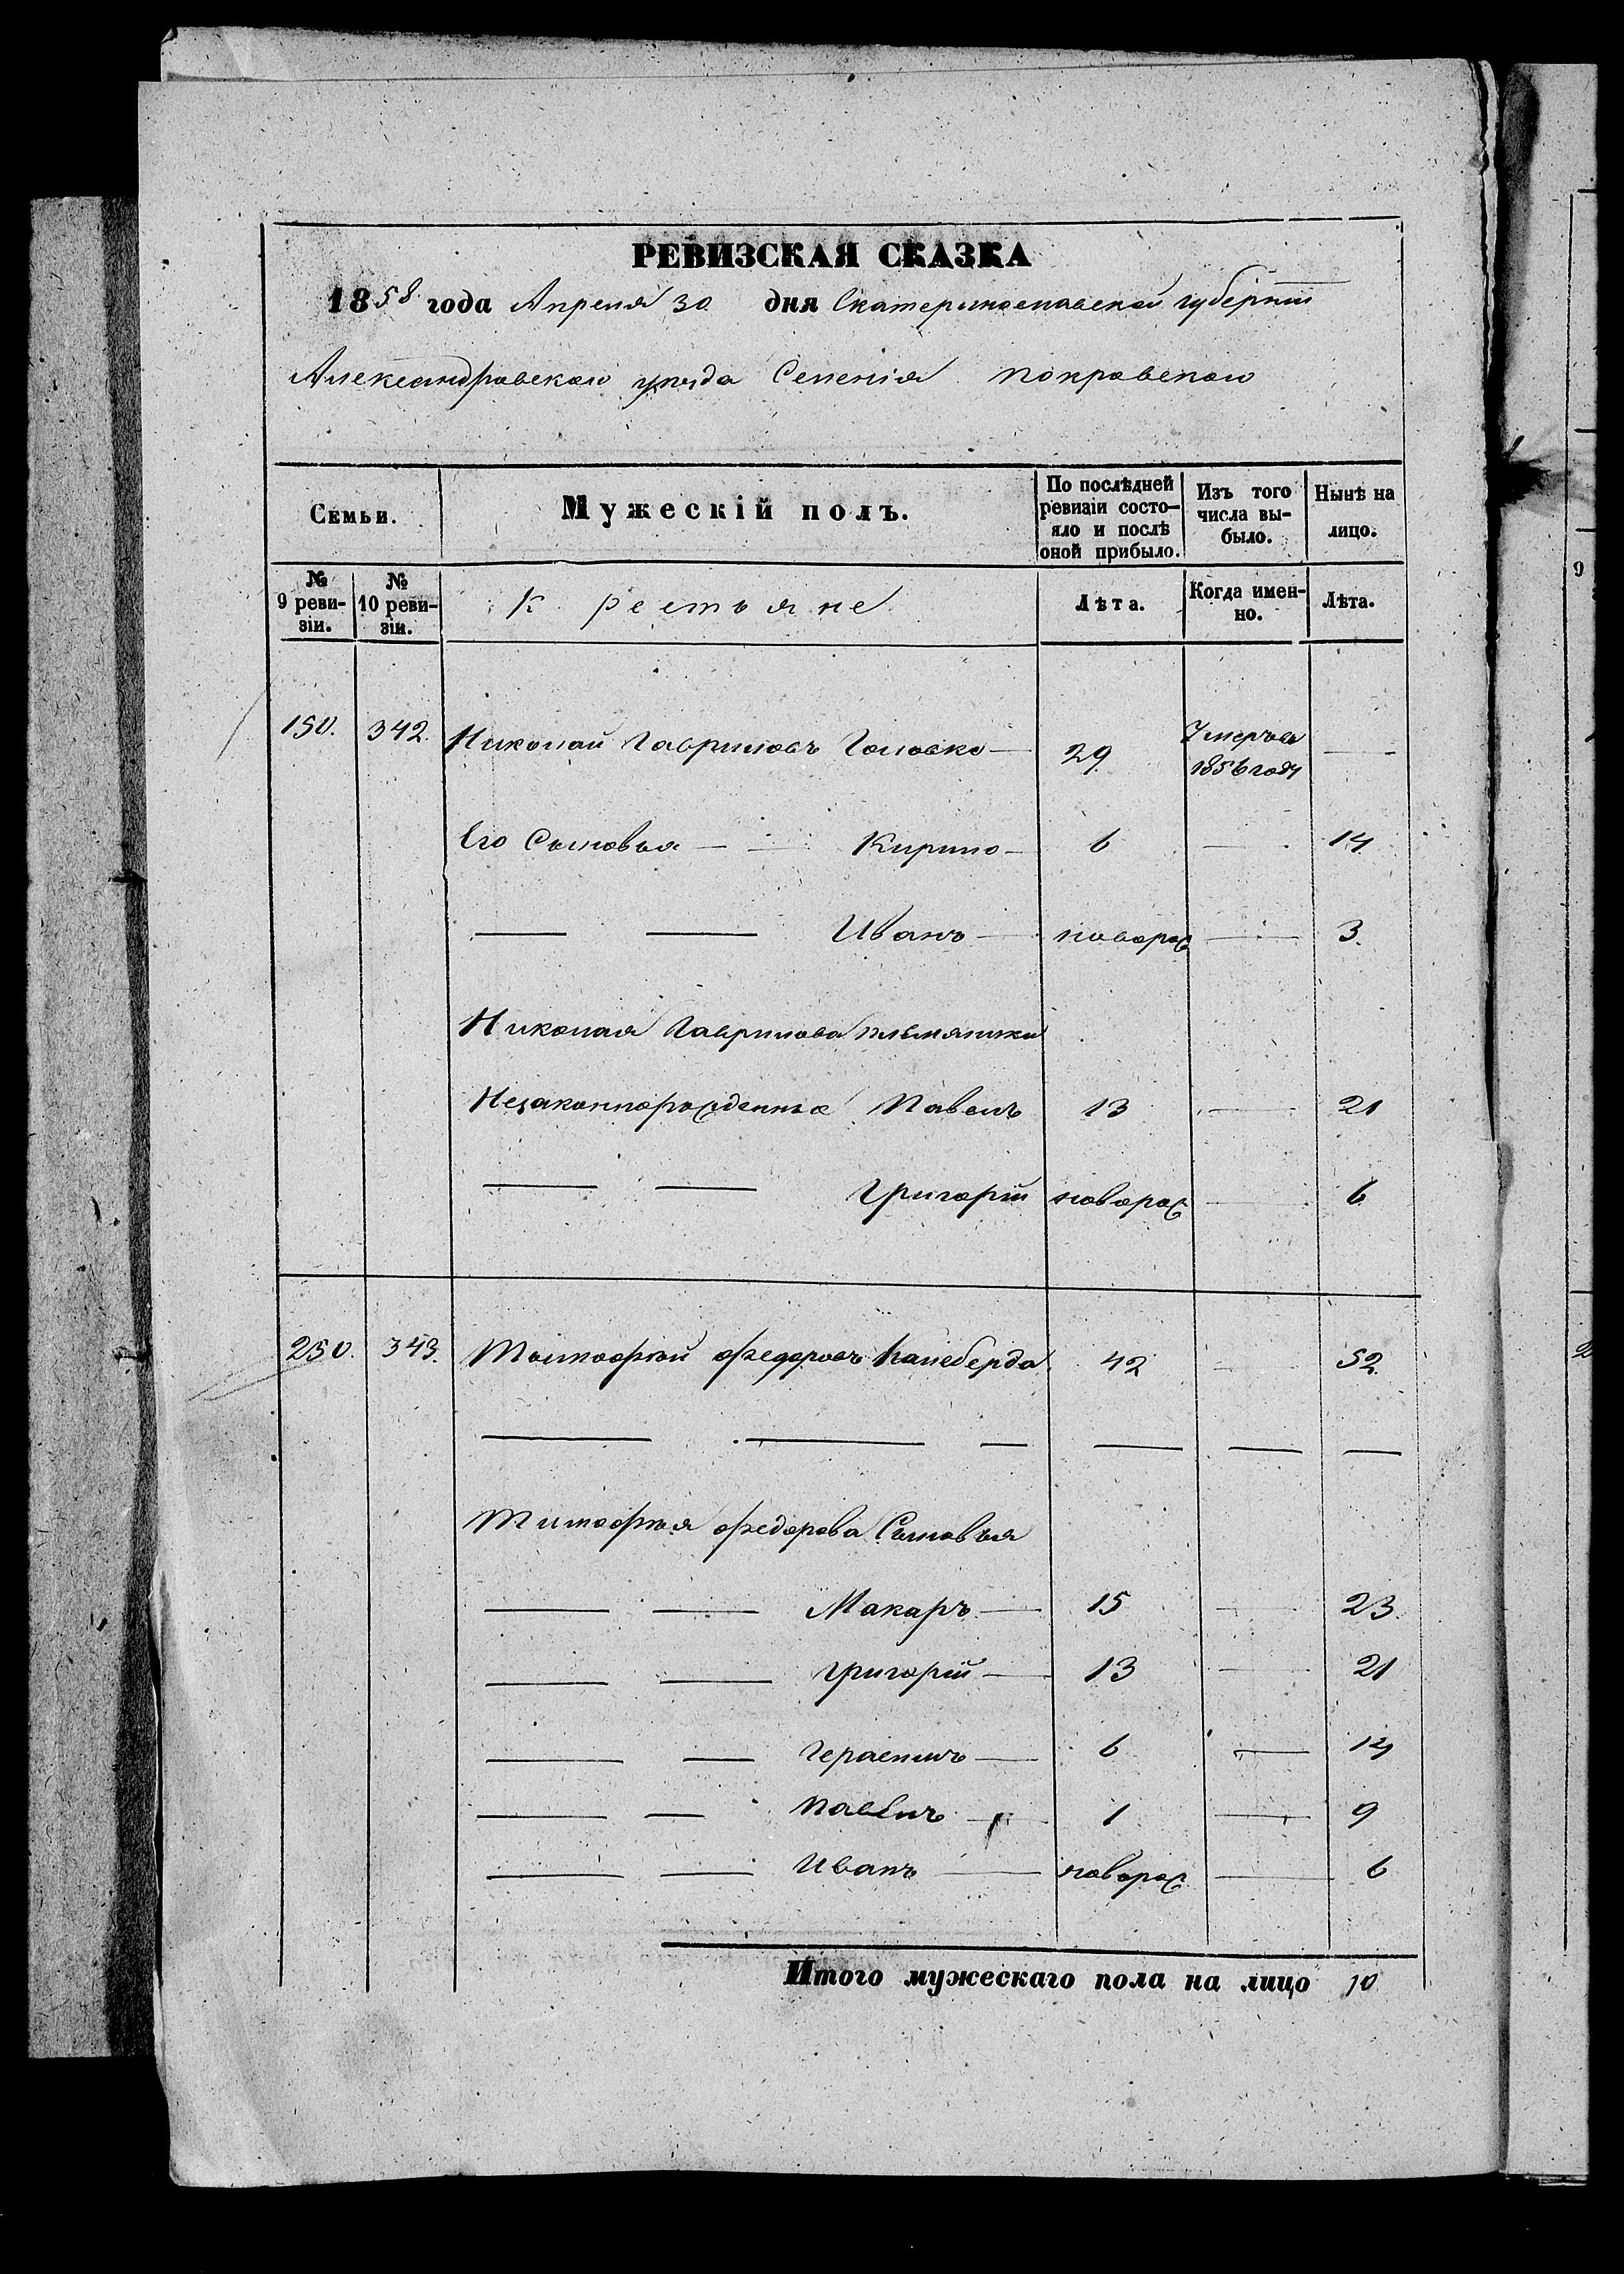 РЕВИЗСКАЯ СКАЗКА
1858 года Апреля 30 дня Екатеринославской губерніи
Александровского уезда Селенія Покровского
Семьи. Мужескій полъ. По послѣдней ревизіи состо-яло и послѣ оной прибыло. Изъ того числа вы-было. Нынѣ на лицо.
№ 9 реви-зіи. № 10 реви-зіи. Крестьяне Лѣта. Когда имен-но. Лѣта.
150. 342. Николай Гавриловъ Головко — 29 Умеръ в 1856 году —
Его Сыновья — — Кирило — 6 — 14
— — Иванъ — новорож — 3.
Николая Гаврилова племяники
Незаконнорожденные Павелъ 13 — 21
— — Григорій новорож — 6
250. 343. Тимофей Федоровъ 42 — 52.
— — — — — —
Тимофея Федорова Сыновья
— — Макаръ — 15 — 23
— — Григорій — 13 — 21
— — Герасимъ — 6 — 14
— — Павелъ — 1 — 9
— — Иванъ — новорож — 6
Итого мужескаго пола на лицо 10